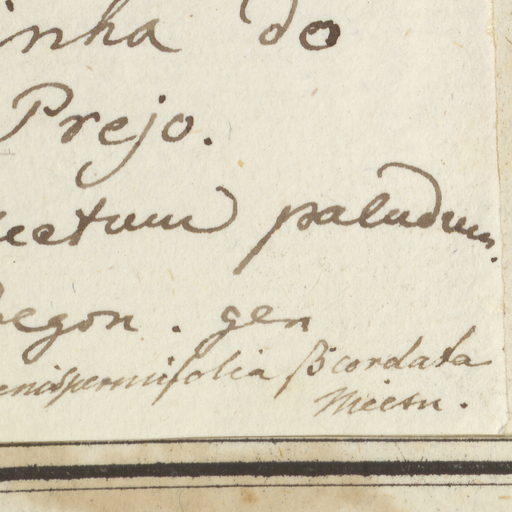 inha do
Prejo.
paludum.
egon. gen
enispermifolia β cordata